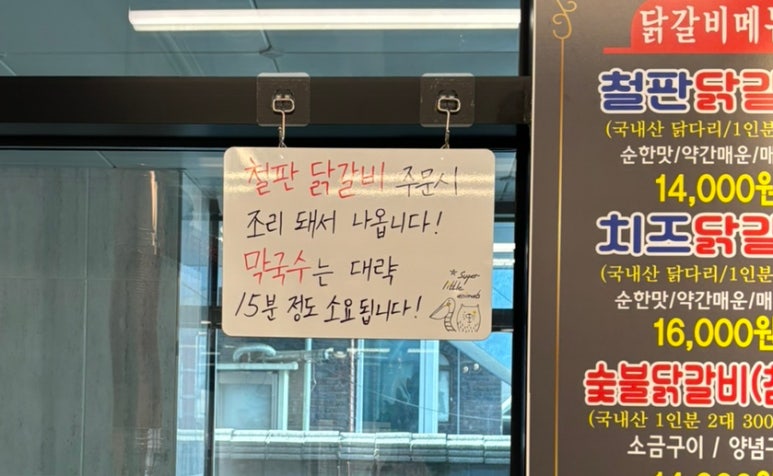 철판 닭갈비 주문시
조리 돼서 나옵니다!
막국수는 대략
15분 정도 소요됩니다!
* Super
little
animals
닭갈비메뉴
철판닭갈
(국내산 닭다리/1인분
순한맛/약간매운/매
14,000원
치즈닭갈
(국내산 닭다리/1인분
순한맛/약간매운/매
16,000원
숯불닭갈비(
(국내산 1인분 2대 300
소금구이 / 양념구